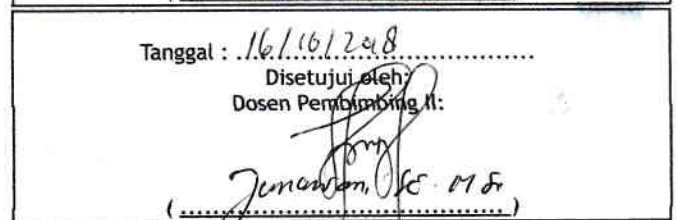 Tanggal : 16/10/2018
Disetujui oleh;
Dosen Pembimbing II:
Junawan, SE. M Si
(..............................................)